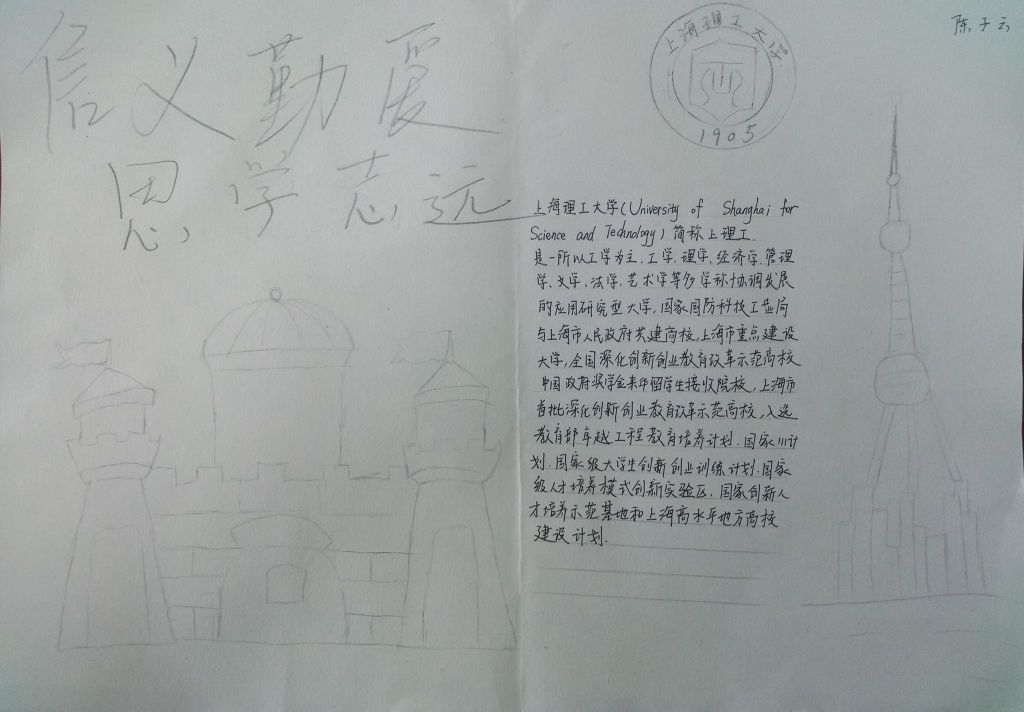 信义勤爱
思学志远
上海理工大学
1905
陈子云
上海理工大学(University of Shanghai for
Science and Technology)简称上理工.
是一所以工学为主,工学,理学,经济学.管理
学、文学、法学、艺术学等多学科协调发展
的应用研究型大学,国家国防科技工业局
与上海市人民政府共建高校,上海市重点建设
大学,全国深化创新创业教育改革示范高校
中国政府奖学金来华留学生接收院校,上海市
首批深化创新创业教育改革示范高校,入选
教育部卓越工程教育培养计划.国家111计
划.国家级大学生创新创业训练计划.国家
级人才培养模式创新实验区.国家创新人
才培养示范基地和上海高水平地方高校
建设计划.